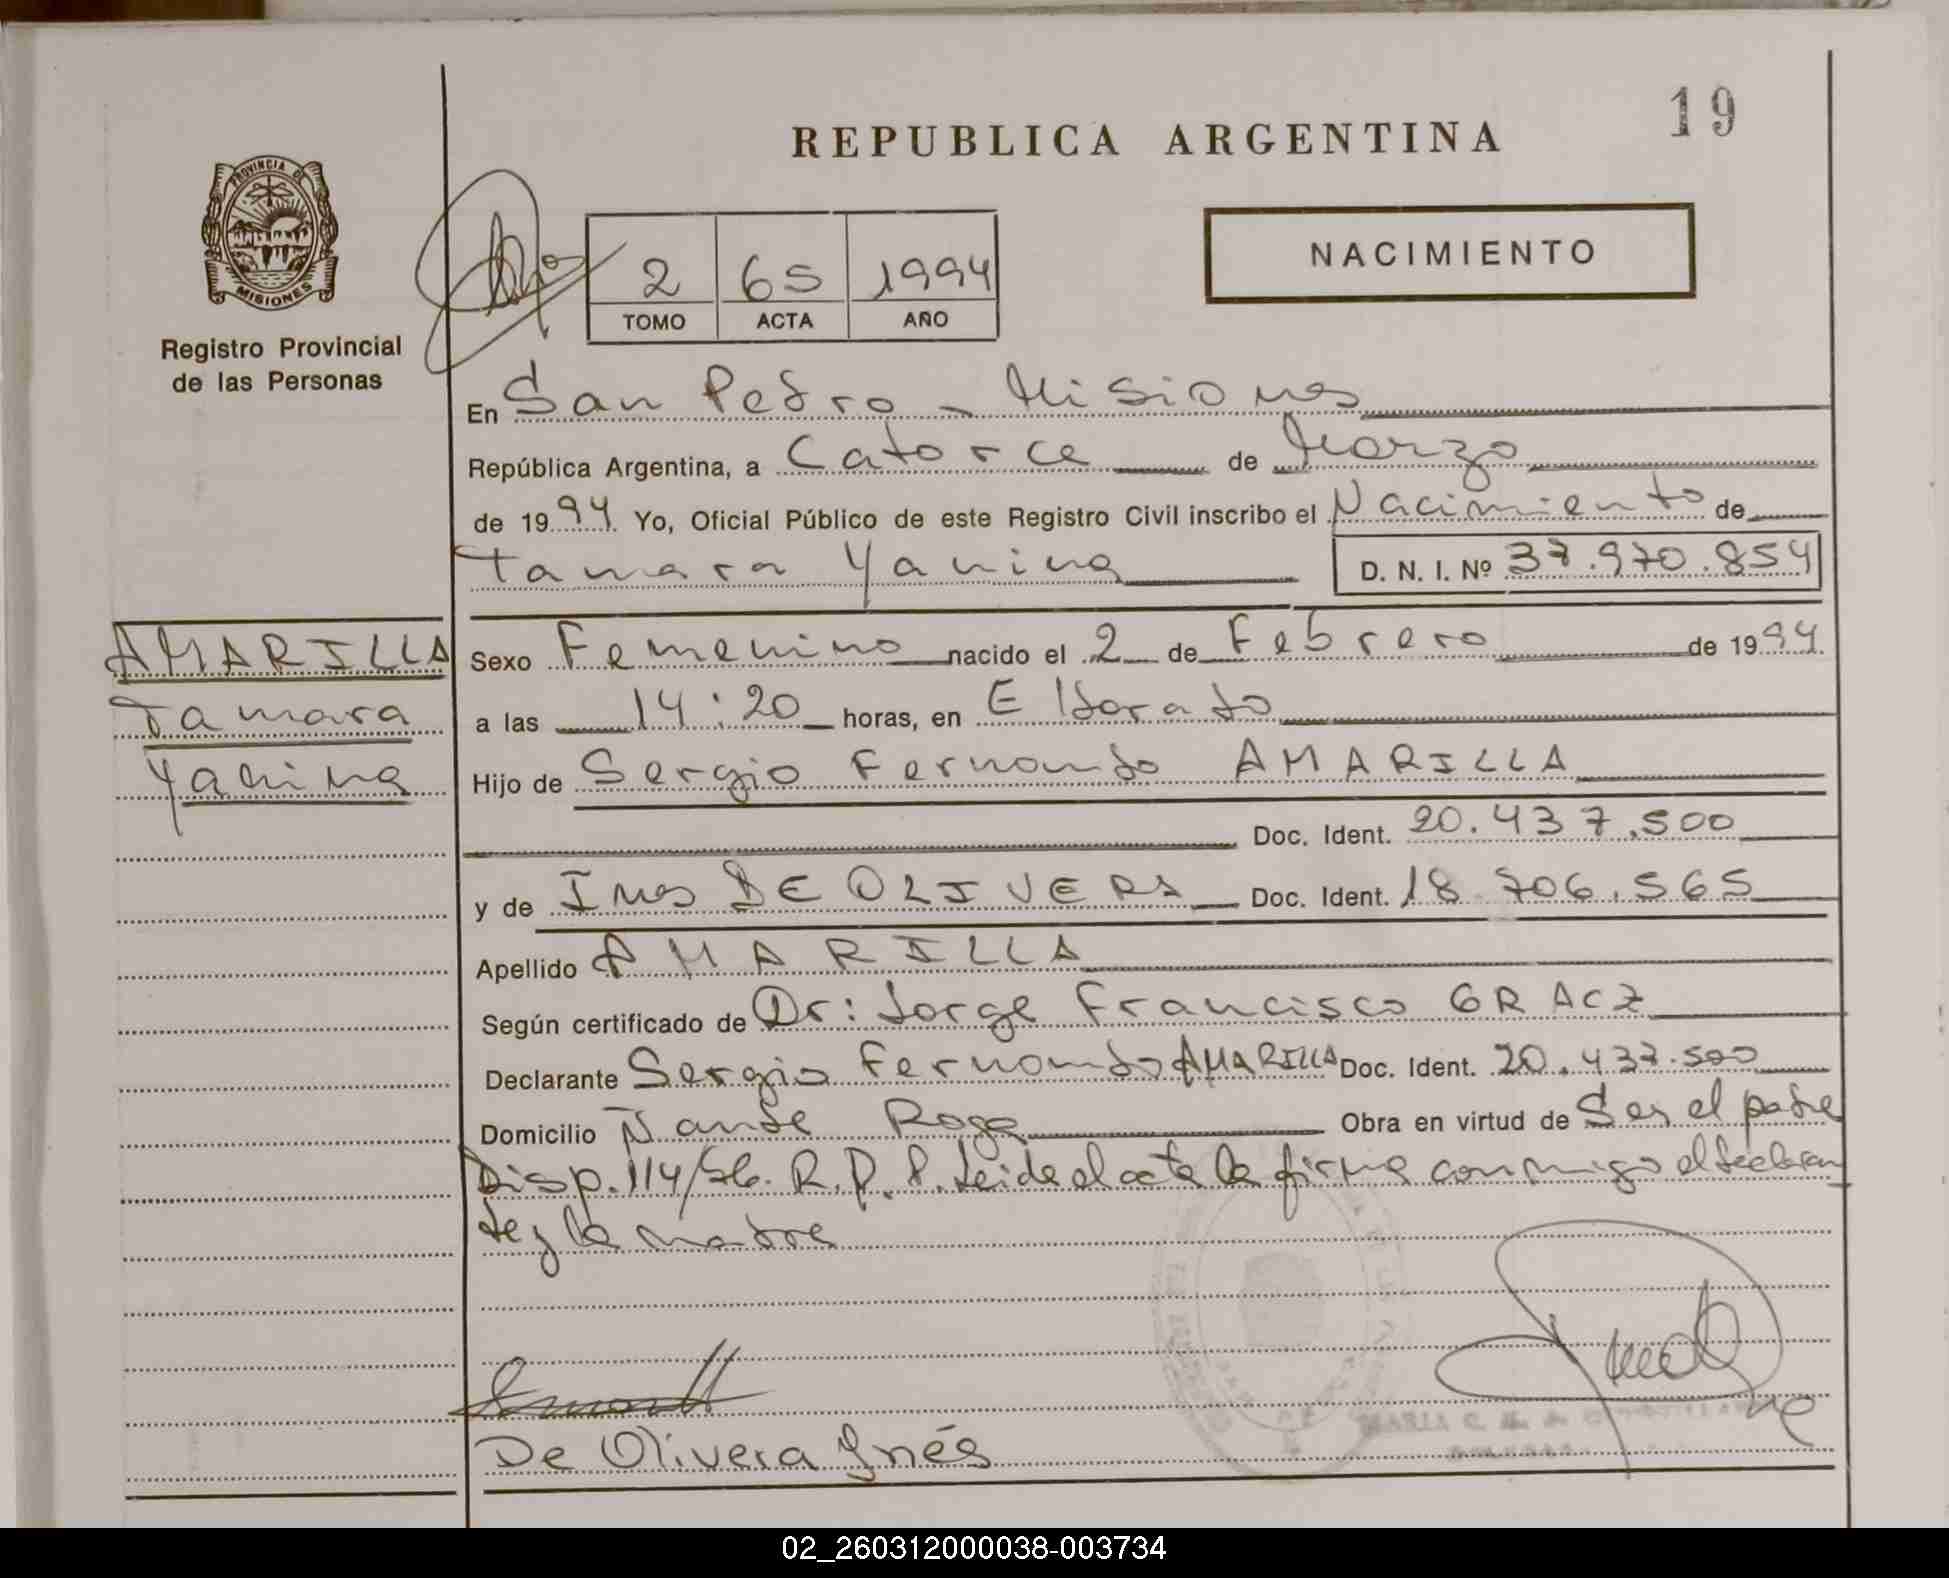 19
REPUBLICA ARGENTINA
PROVINCIA DE
MISIONES
NACIMIENTO
2 65 1994
TOMO ACTA AÑO
Registro Provincial
de las Personas
En San Pedro - Misiones
República Argentina, a Catorce de Marzo
de 1994 Yo, Oficial Público de este Registro Civil inscribo el Nacimiento de
Tamara Yanina D. N. I. Nº 37.970.854
AMARILLA
Tamara
Yanina
Sexo Femenino nacido el 2 de Febrero de 1994
a las 14:20 horas, en Eldorado
Hijo de Sergio Fernando AMARILLA
Doc. Ident. 20.437.500
y de Ines DE OLIVERA Doc. Ident. 18.706.565
Apellido AMARILLA
Según certificado de Dr: Jorge Francisco GRACZ
Declarante Sergio Fernando AMARILLA Doc. Ident. 20.437.500
Domicilio Ñande Roga Obra en virtud de Ser el padre
Disp. 114/86. R.P.P. Leida el acta la firma conmigo el declaran
te y la madre
De Olivera Ynés
MARIA
02_260312000038-003734